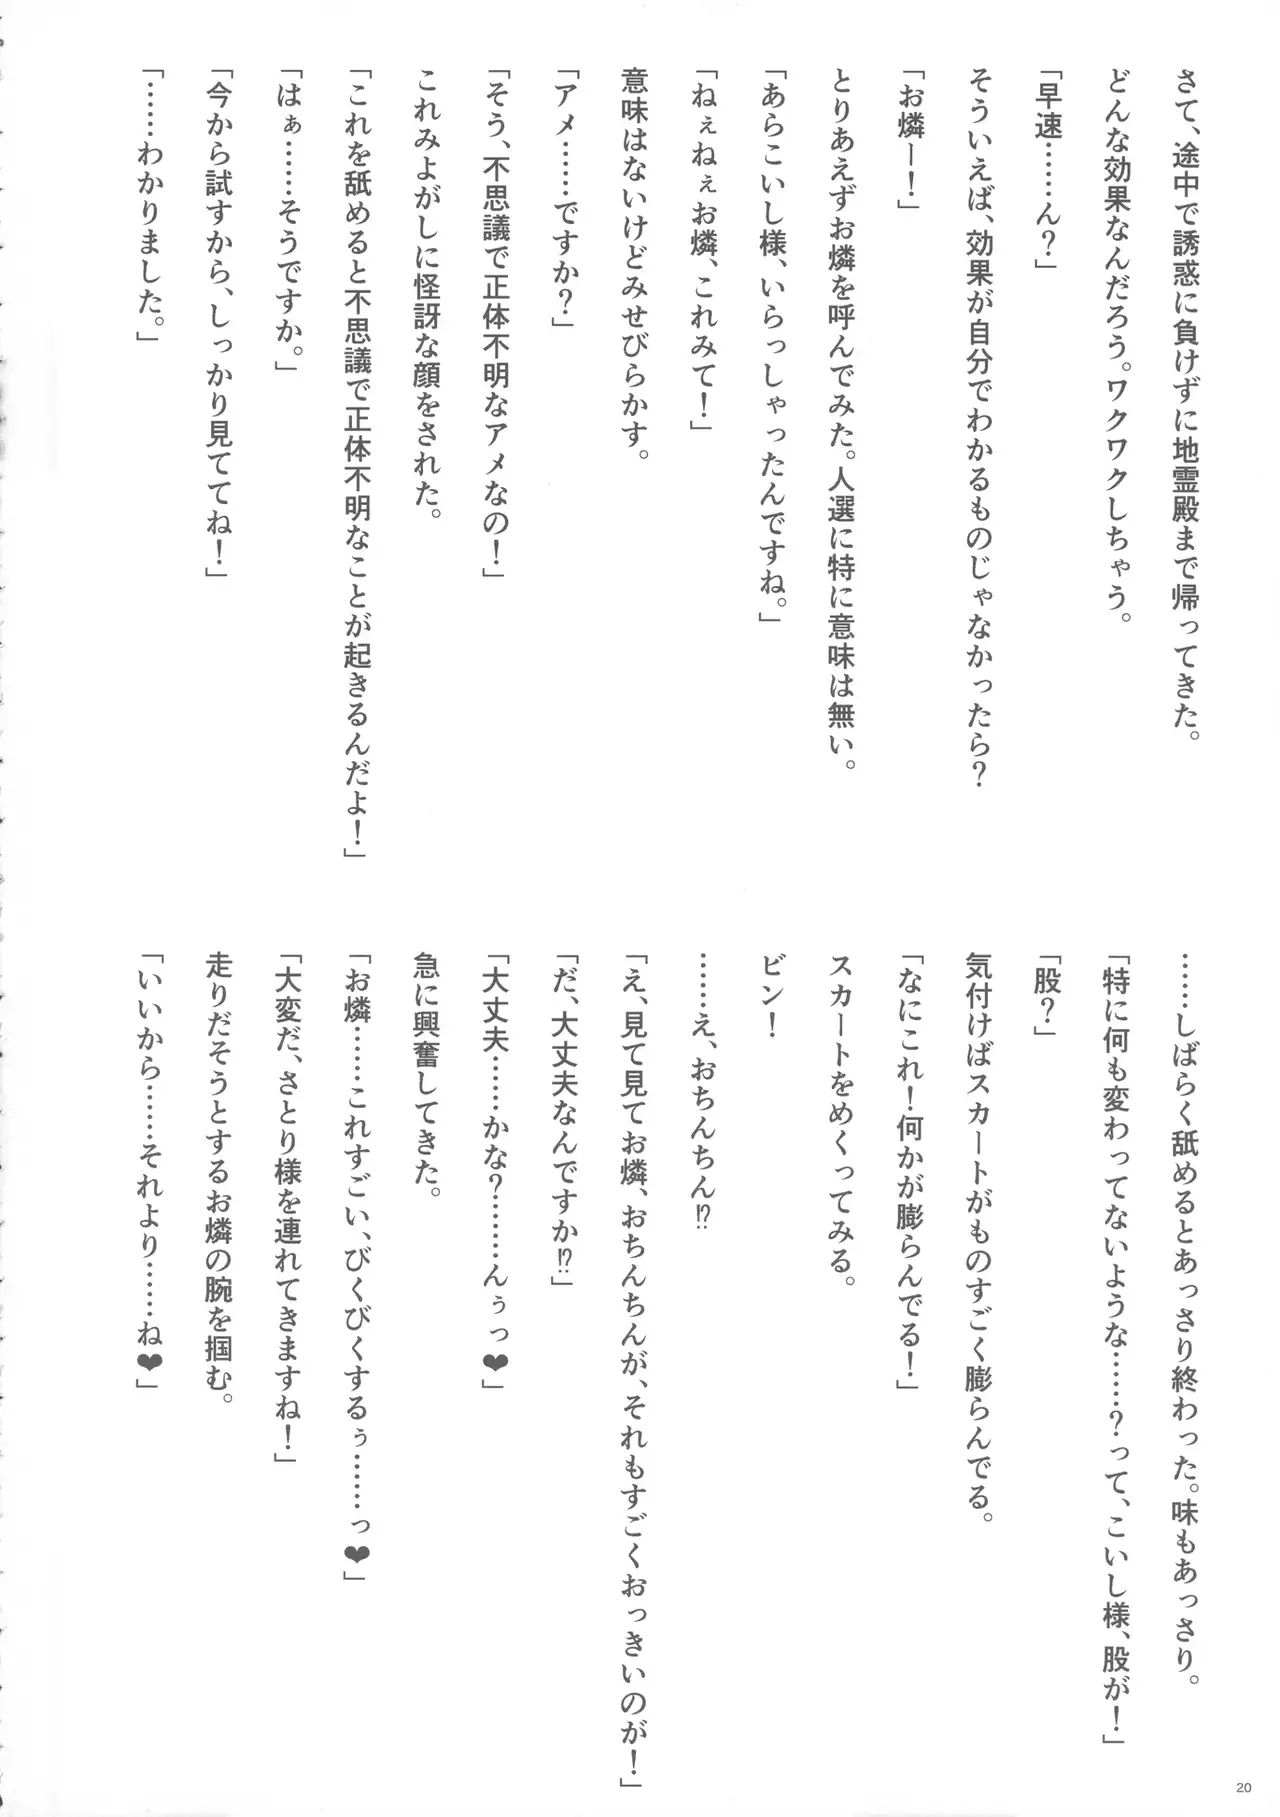 さて、途中で誘惑に負けずに地霊殿まで帰ってきた。
どんな効果なんだろう。ワクワクしちゃう。
「早速……ん？」
そういえば、効果が自分でわかるものじゃなかったら？
「お燐ー！」
とりあえずお燐を呼んでみた。人選に特に意味は無い。
「あらこいし様、いらっしゃったんですね。」
「ねぇねぇお燐、これみて！」
意味はないけどみせびらかす。
「アメ……ですか？」
「そう、不思議で正体不明なアメなの！」
これみよがしに怪訝な顔をされた。
「これを舐めると不思議で正体不明なことが起きるんだよ！」
「はぁ……そうですか。」
「今から試すから、しっかり見ててね！」
「……わかりました。」
……しばらく舐めるとあっさり終わった。味もあっさり。
「特に何も変わってないような……？って、こいし様、股が！」
「股？」
気付けばスカートがものすごく膨らんでる。
「なにこれ！何かが膨らんでる！」
スカートをめくってみる。
ビン！
……え、おちんちん⁉
「え、見て見てお燐、おちんちんが、それもすごくおっきいのが！」
「だ、大丈夫なんですか⁉」
「大丈夫……かな？………んぅっ❤」
急に興奮してきた。
「お燐……これすごい、びくびくするぅ……っ❤」
「大変だ、さとり様を連れてきますね！」
走りだそうとするお燐の腕を掴む。
「いいから……それより……ね❤」
20